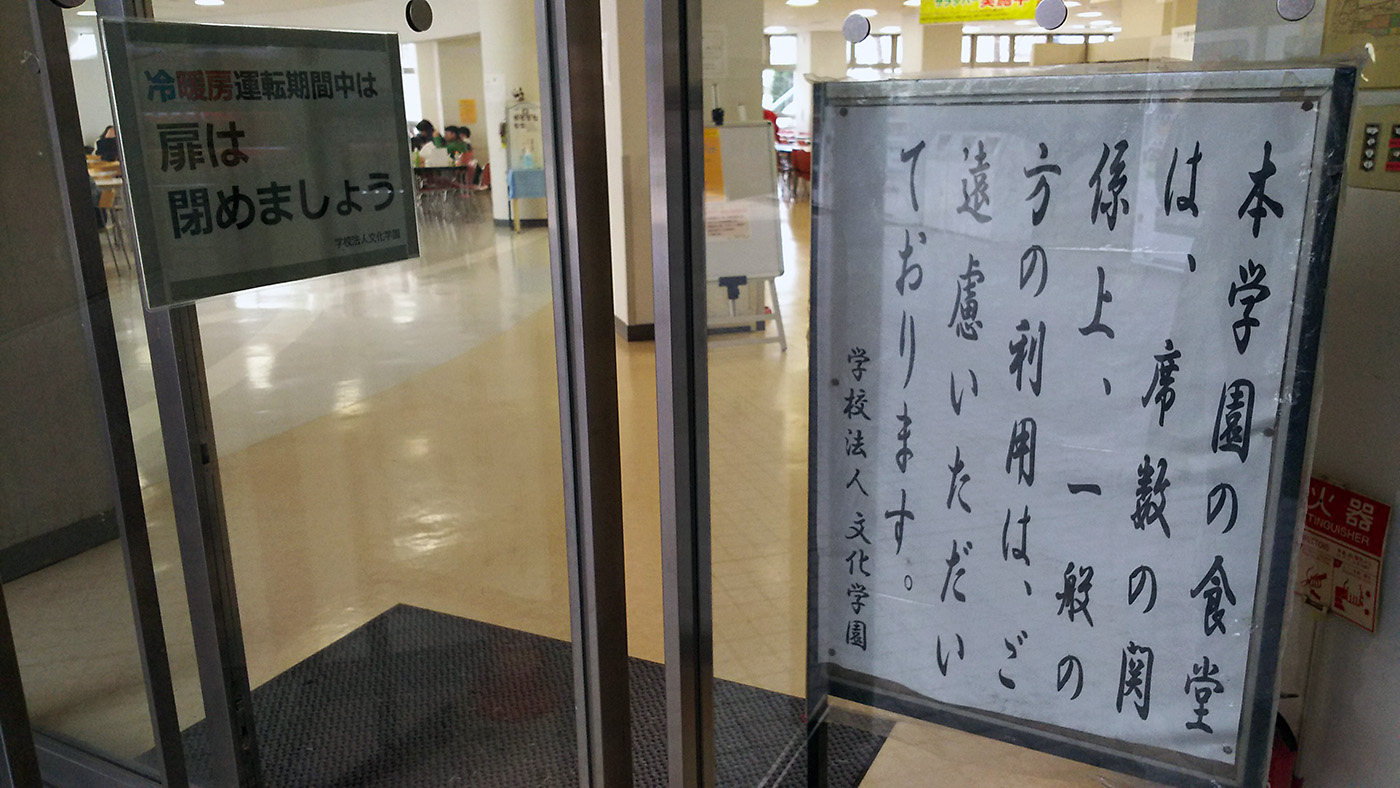 冷暖房運転期間中は
扉は
閉めましょう
学校法人文化学園
実施中
本学園の食堂
は、席数の関
係上、一般の
方の利用は、ご
遠慮いただい
ております。
学校法人文化学園
火器
TINGUISHER